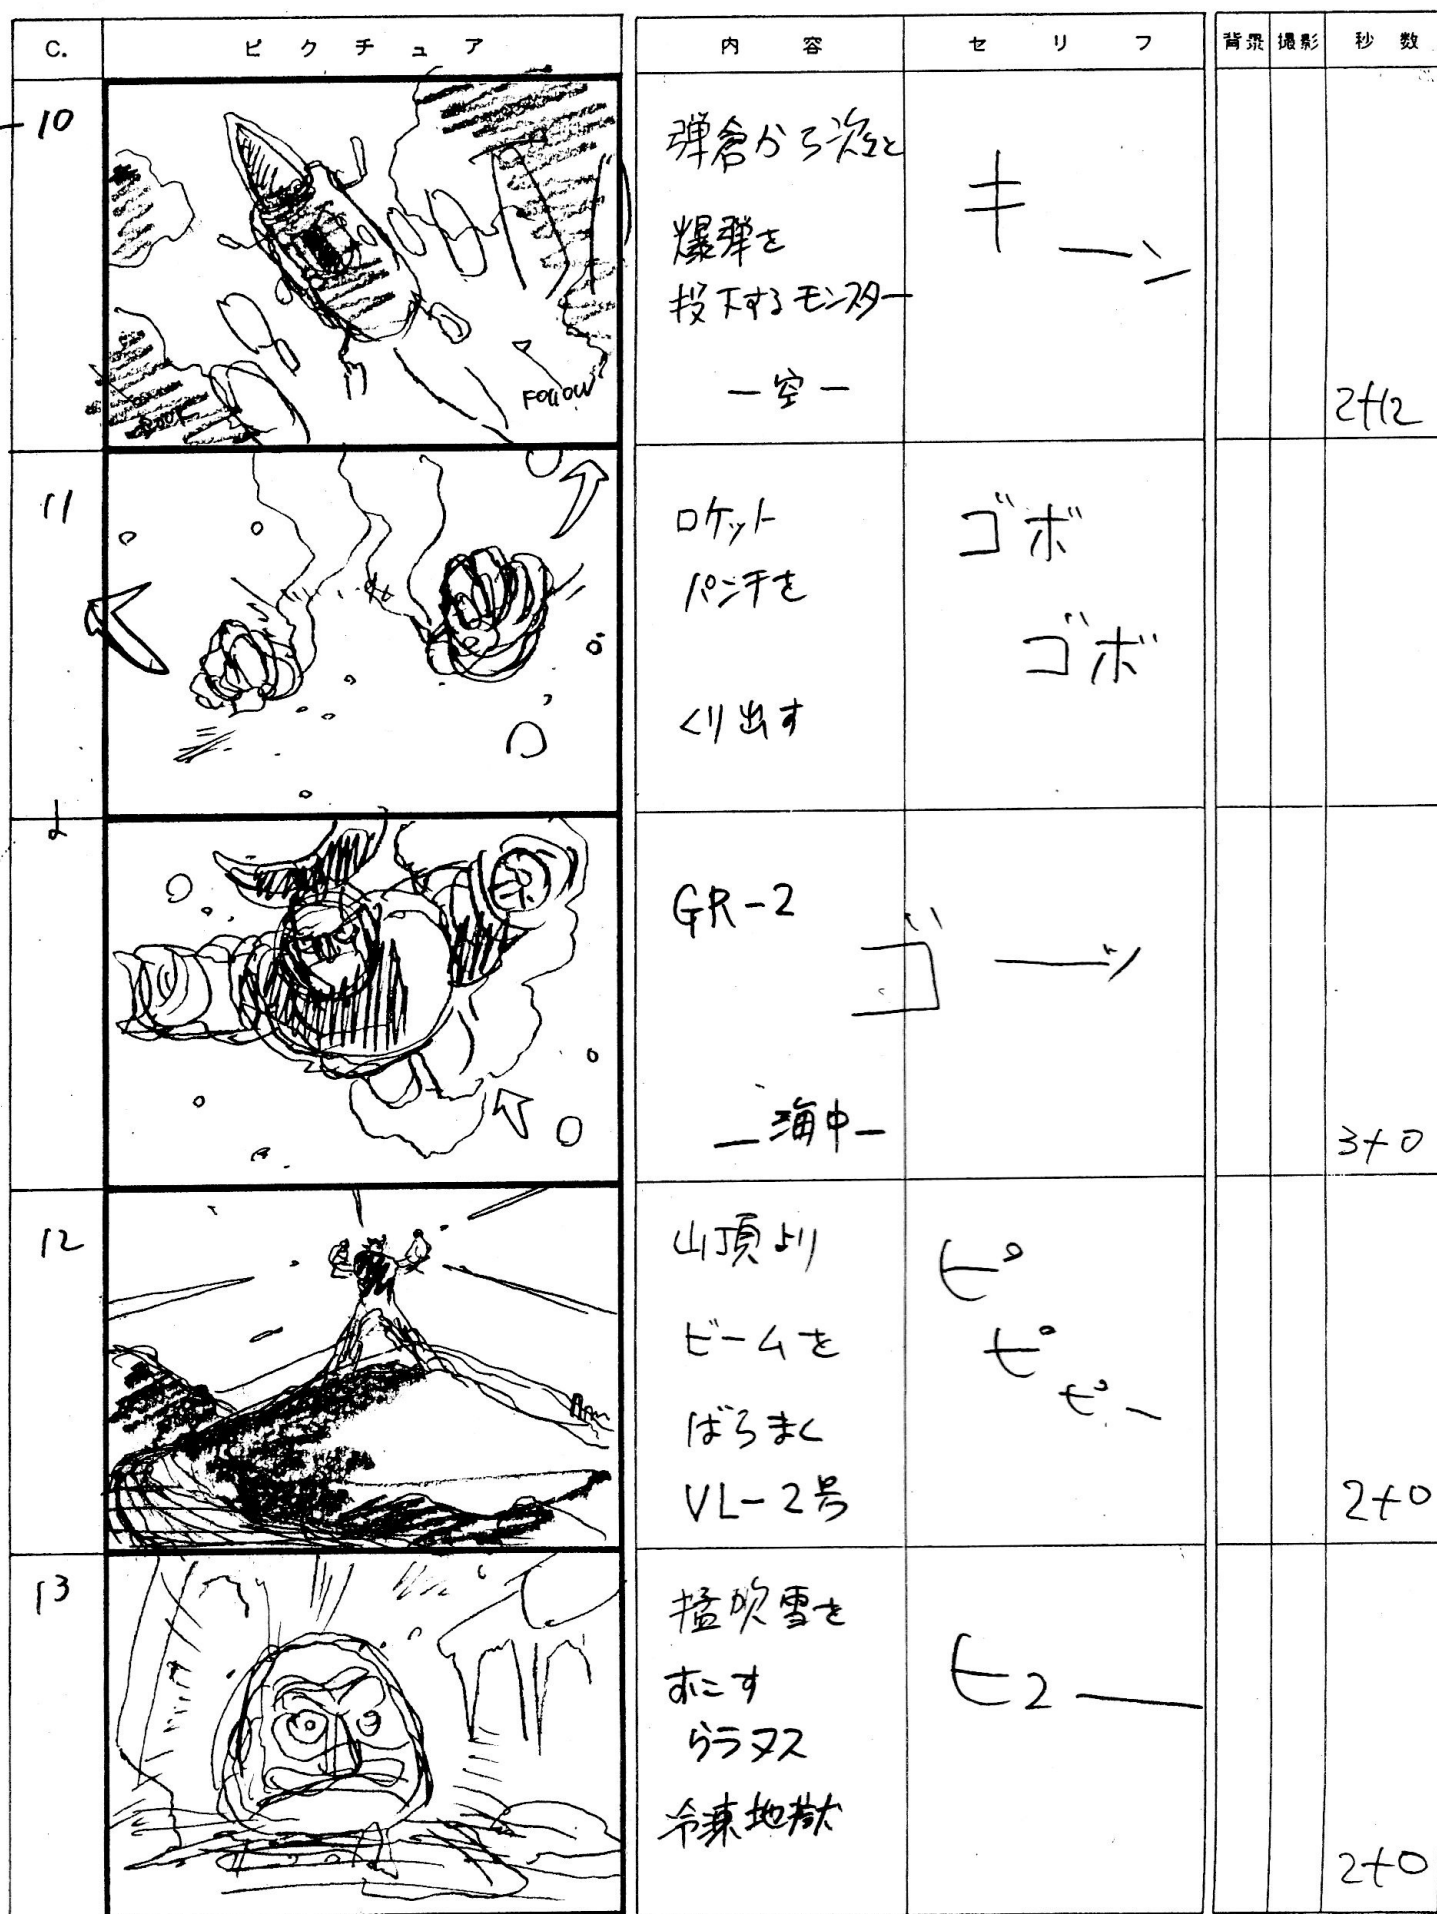 C. ピクチュア 内容 セリフ 背景 撮影 秒数
10
FOLLOW
BOOK
弾倉から次々と
爆弾を
投下するモンスター
ー空ー
キーン
2+12
11
ロケット
パンチを
くり出す
ゴボ
ゴボ
GR-2
ゴーッ
ー海中ー
3+0
12
山頂より
ビームを
ばらまく
VL-2号
ピ
ピ
ピー
2+0
13
猛吹雪を
おこす
ウラヌス
冷凍地獄
2+0